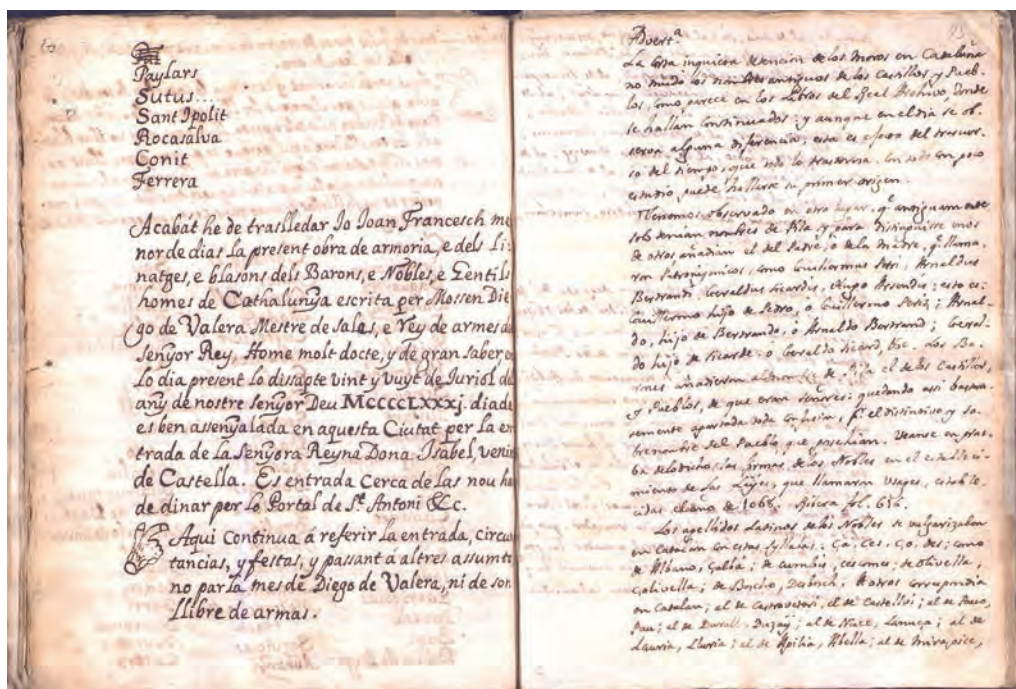 Paylars
Sutus...
Sant Ipolit
Rocasalva
Conit
Ferrera
Acabát he de traslledar Jo Joan Francesch me
nor de dias la present obra de armoria, e dels Li:
natges, e blasons dels Barons, e Nobles, e Gentils
homes de Cathalunÿa escrita per Mossen Die
go de Valera Mestre de sales, e rey de armes de
senÿor Rey, Home molt docte, y de gran saber
Lo dia present lo dissapte vint y vuyt de Juriol de
any de nostre senÿor Deu MCCCCLXXXj. diada
es ben assenÿalada en aquesta Ciutat per la en
trada de La senÿora Reyna Dona Isabel, venin
de Castella. Es entrada cerca de las nou ho
de dinar per lo Portal de St. Antoni &c.
Aqui continua á referir la entrada, circun
tancias, y festas, y passant á altres assumtos
no parla mes de Diego de Valera, ni de son
Llibre de armas.
Advert.ª
La corta inquieta detencion de los Moros en Cataluña
no mudó los nombres antiguos de los Castillos y Pueb-
los, como parece en los Libros del Real Archivo, donde
se hallan continuados: y aunque en el dia se ob-
serva alguna diferencia, esta es efecto del trascur-
so del tiempo, que todo lo trastorna. Con todo con poco
estudio puede hallarse su primer origen.
Tenemos observado en otro lugar, q.e antiguamente
solo tenian nombres de Pila, y para distinguirse unos
de otros añadian el del Padre, ó de la Madre, q.e llama-
ron Patronymicos, como Guillermus Petri, Arnaldus
Bertrandi, Geraldus Ricardus, esto es:
Guillermo hijo de Pedro, ó Guillermo Periz; Arnal-
do, hijo de Bertrando, ó Arnaldo Bertrand; Geral-
do hijo de Ricarde, ó Geraldo Ricard, &c. Los Ba-
rones añadieron al nombre de Pila el de los Castillos,
y Pueblos, de que eran señores: quedando assi bastan-
temente apartada toda confusion, p.r el distintivo y so-
brenombre del Pueblo, que poschian. Veanse en prue-
ba de lo dicho las firmas de los Nobles en el estableci-
miento de las Leyes, que llamaron Usages, estable-
cidas el año de 1068. fol. 616.
Los apellidos Latinos de los Nobles se vulgarizaban
en Catalan con estas syllabas: Ça, Ces, Ço, des; como
de Albano, Çalbá; de cumbis, cescomes; de olivella,
Çolivella; de Boscho, Dezbosch. A otros correspondia
en Catalan; al de Castrovetori, el de Castellvi; al de Pavo,
Pau; al de
Lauria, Lluria; al de Apilia, Abella; al de mirapice,